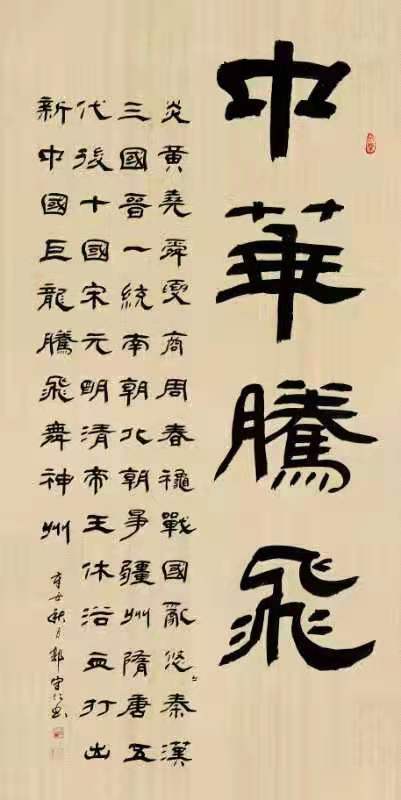 中華騰飛
炎黃堯舜夏商周春龝戰國亂悠〻秦漢
三國晉一統南朝北朝爭疆州隋唐五
代後十國宋元明清帝王休浴血打出
新中國巨龍騰飛舞神州
辛丑秋月郭守書